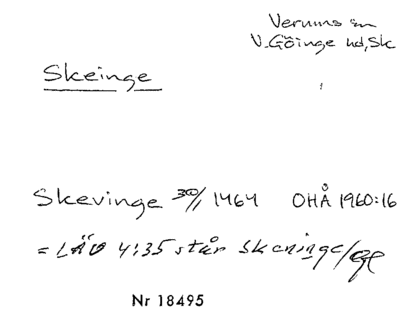 Verums sn
V. Göinge hd, Sk
Skeinge
Skevinge 30/1 1464 OHÅ 1960:16
= LÄO 4:35 står skeninge/
Nr 18495